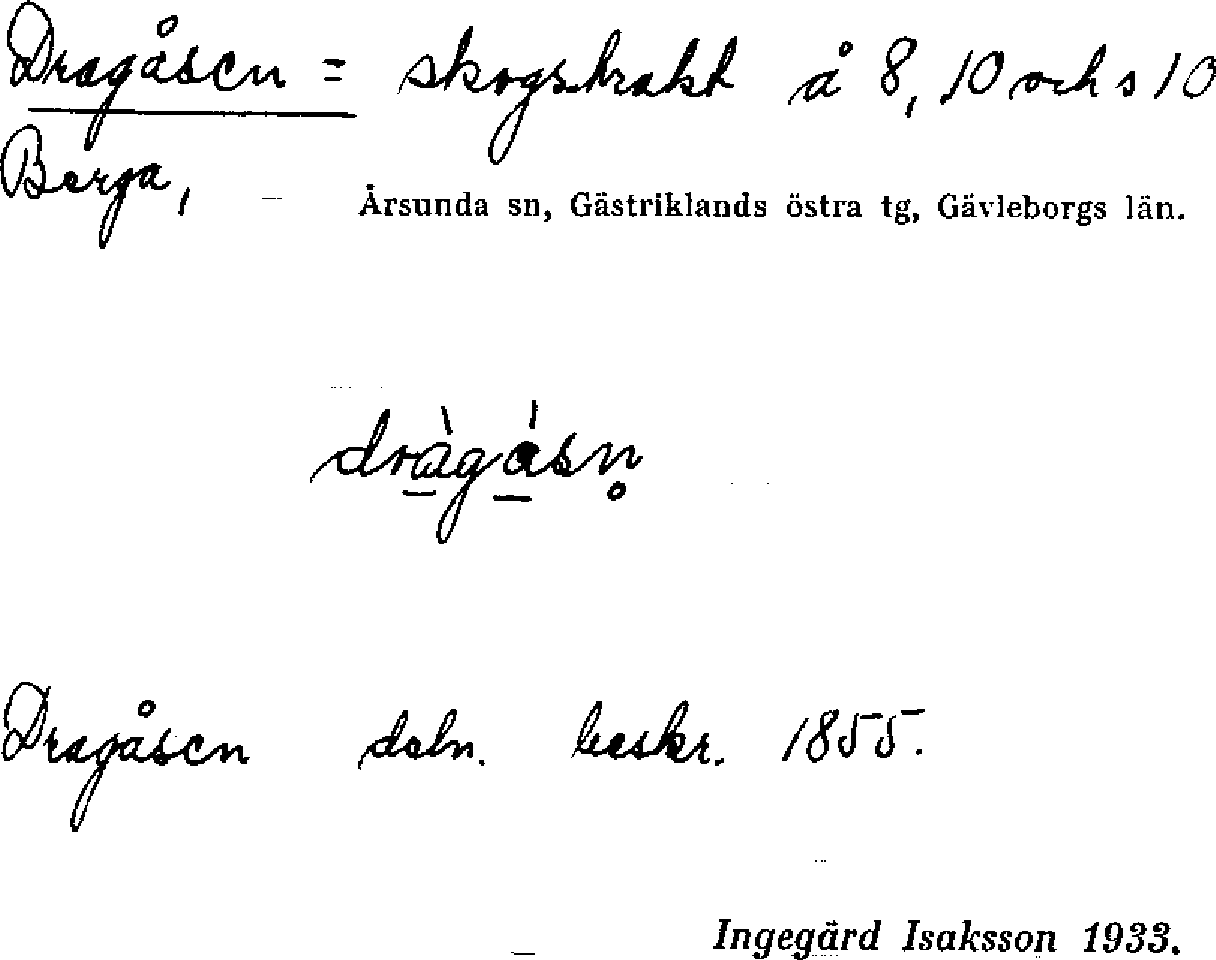 Dragåsen = skogstrakt å 8, 10 och s 10
Berga, Årsunda sn, Gästriklands östra tg, Gävleborgs län.
dràgásn̥
Dragåsen deln. beskr. 1855.
Ingegärd Isaksson 1933.